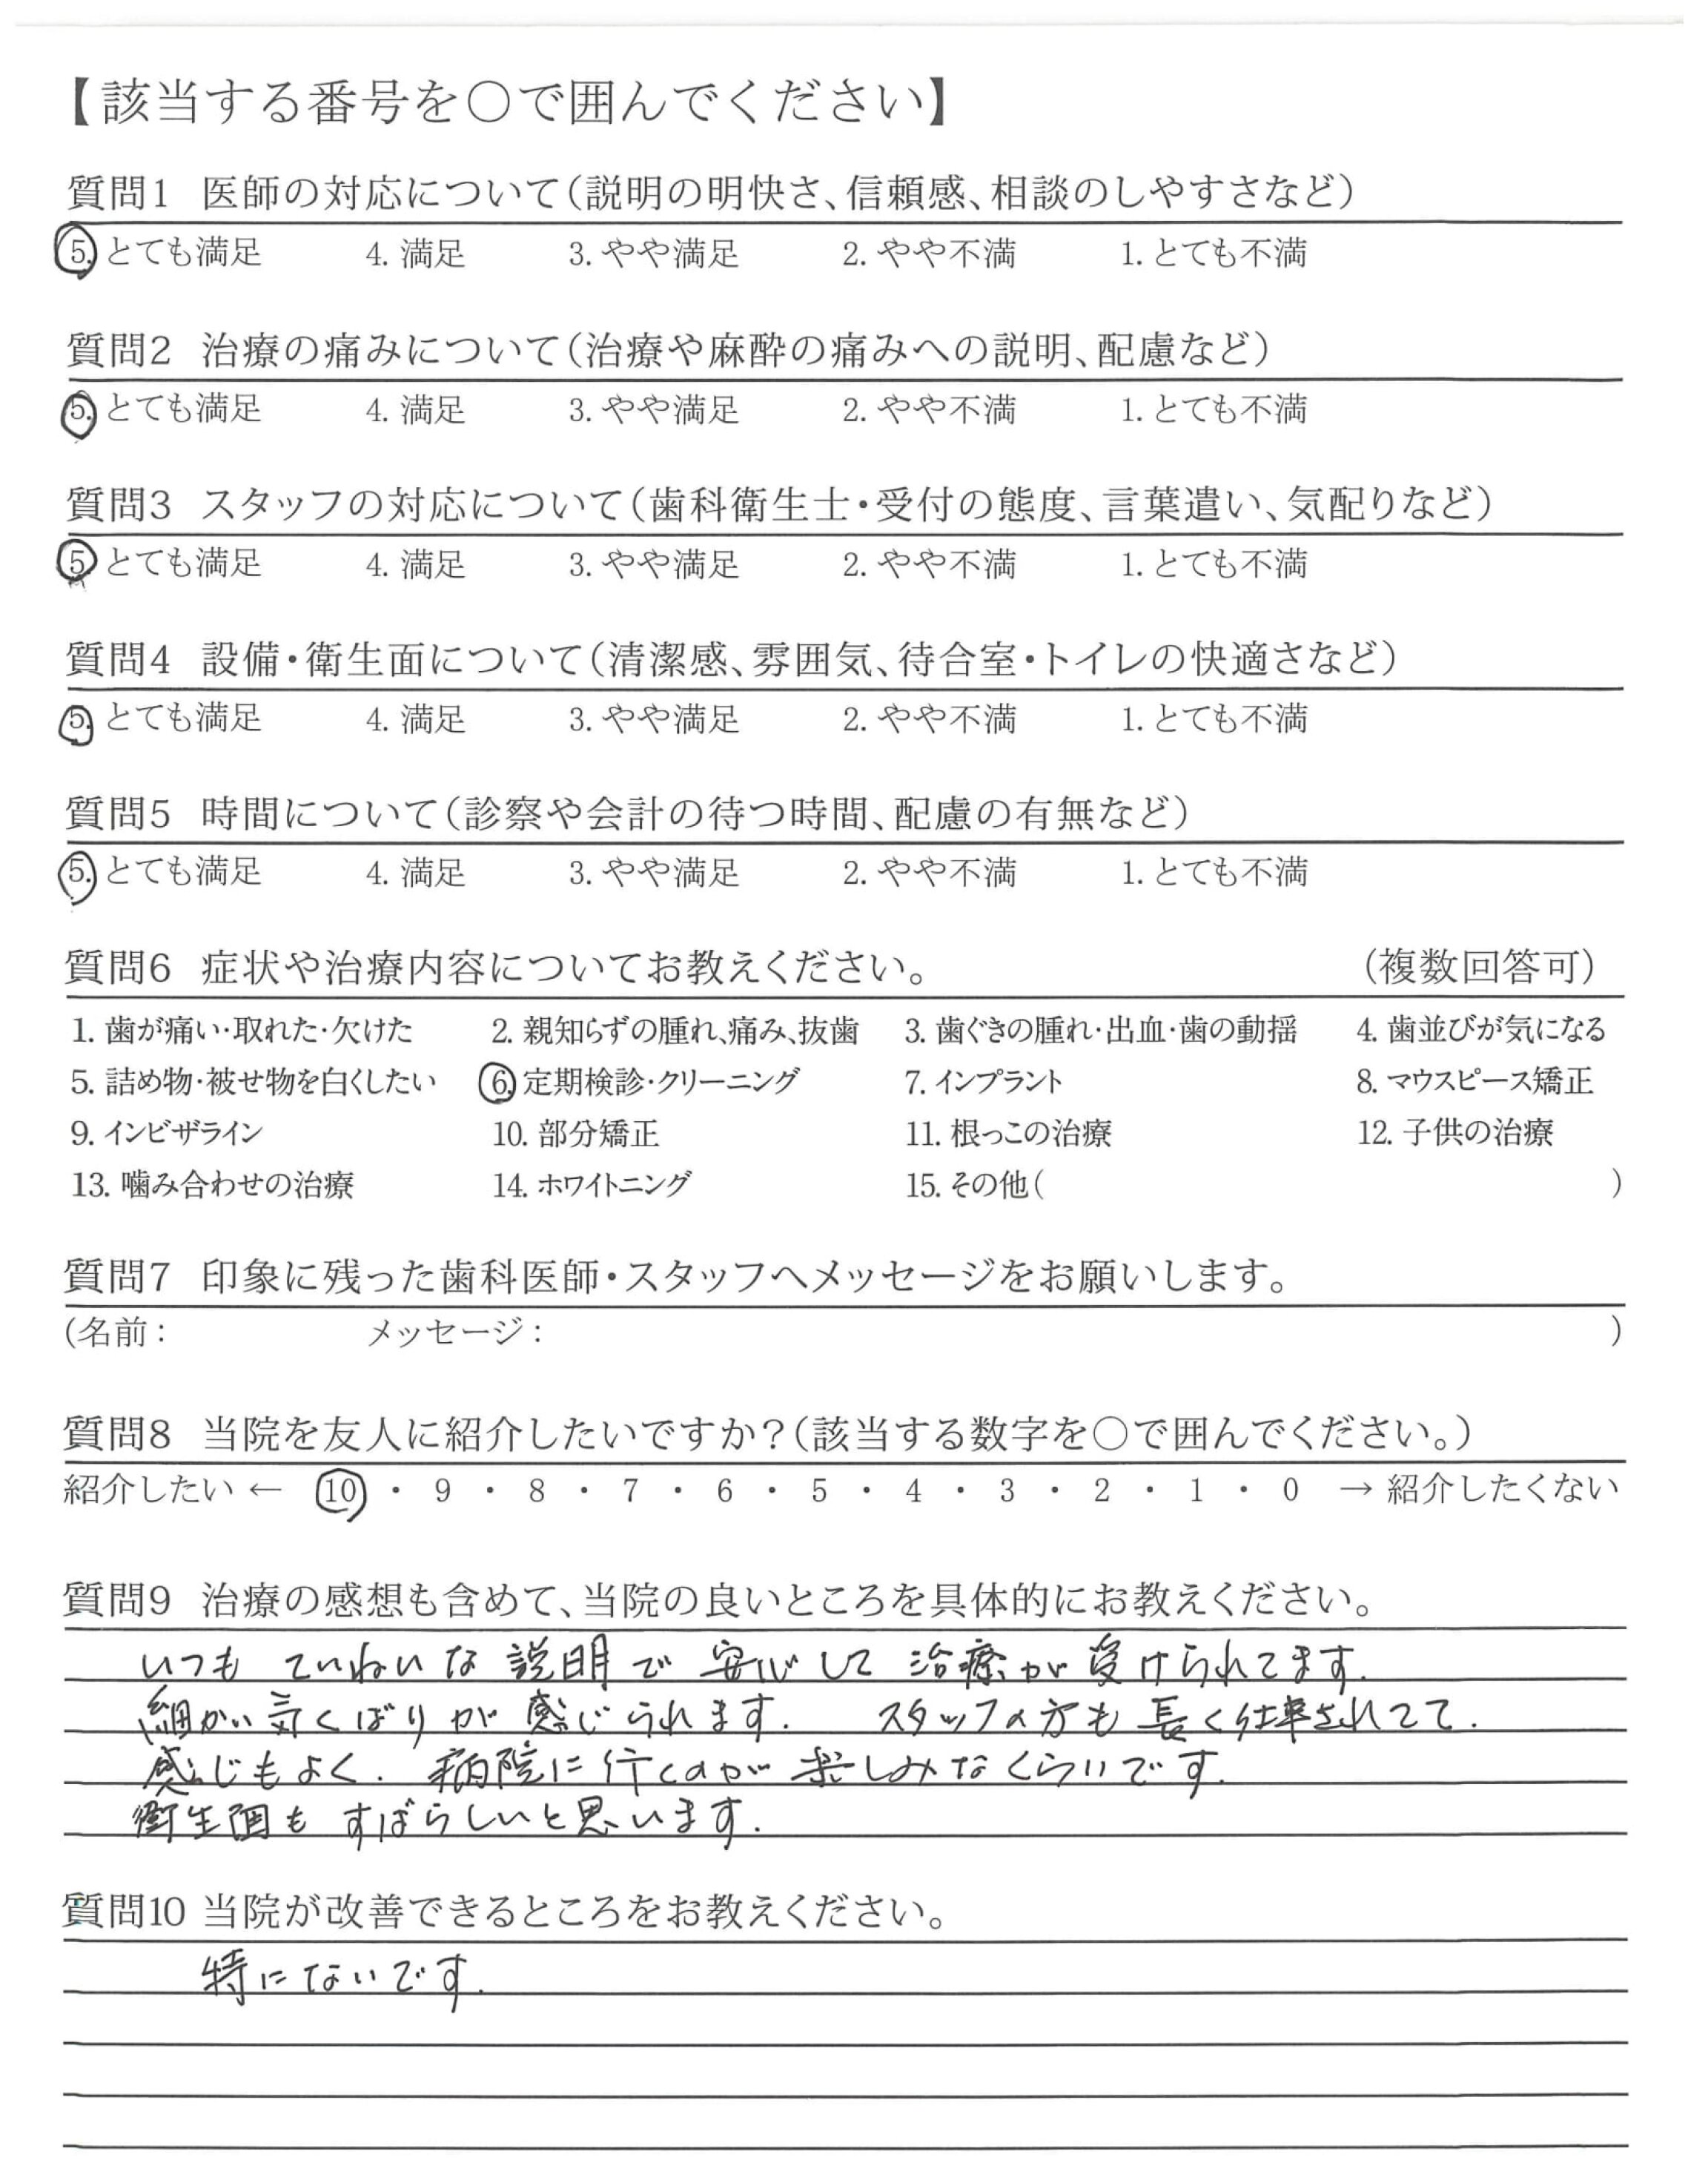 【該当する番号を〇で囲んでください】
質問1 医師の対応について(説明の明快さ、信頼感、相談のしやすさなど)
5. とても満足 4. 満足 3. やや満足 2. やや不満 1. とても不満
質問2 治療の痛みについて(治療や麻酔の痛みへの説明、配慮など)
5. とても満足 4. 満足 3. やや満足 2. やや不満 1. とても不満
質問3 スタッフの対応について(歯科衛生士・受付の態度、言葉遣い、気配りなど)
5. とても満足 4. 満足 3. やや満足 2. やや不満 1. とても不満
質問4 設備・衛生面について(清潔感、雰囲気、待合室・トイレの快適さなど)
5. とても満足 4. 満足 3. やや満足 2. やや不満 1. とても不満
質問5 時間について(診察や会計の待つ時間、配慮の有無など)
5. とても満足 4. 満足 3. やや満足 2. やや不満 1. とても不満
質問6 症状や治療内容についてお教えください。 (複数回答可)
1. 歯が痛い・取れた・欠けた 2. 親知らずの腫れ、痛み、抜歯 3. 歯ぐきの腫れ・出血・歯の動揺 4. 歯並びが気になる
5. 詰め物・被せ物を白くしたい 6. 定期検診・クリーニング 7. インプラント 8. マウスピース矯正
9. インビザライン 10. 部分矯正 11. 根っこの治療 12. 子供の治療
13. 噛み合わせの治療 14. ホワイトニング 15. その他( )
質問7 印象に残った歯科医師・スタッフへメッセージをお願いします。
(名前: メッセージ: )
質問8 当院を友人に紹介したいですか?(該当する数字を〇で囲んでください。)
紹介したい ← 10 ・ 9 ・ 8 ・ 7 ・ 6 ・ 5 ・ 4 ・ 3 ・ 2 ・ 1 ・ 0 → 紹介したくない
質問9 治療の感想も含めて、当院の良いところを具体的にお教えください。
いつも ていねいな 説明で 安心して 治療が 受けられてます.
細かい気くばりが 感じられます. スタッフの方も 長く仕事されてて.
感じもよく. 病院に行くのが 楽しみなくらいです.
衛生面も すばらしいと思います.
質問10 当院が改善できるところをお教えください。
特にないです.